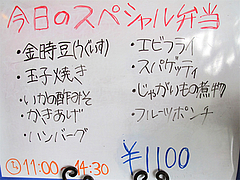 今日のスペシャル弁当
・金時豆(うぐいす)
・玉子焼き
・いかの酢みそ
・かきあげ
・ハンバーグ
・エビフライ
・スパゲッティ
・じゃがいもの煮物
・フルーツポンチ
11:00 14:30
¥1100